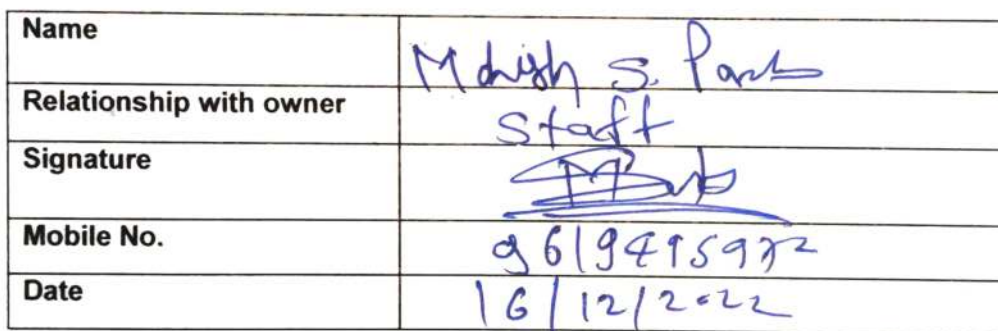 Name
S.
Relationship with owner Staff
Signature
Mobile No. 9619495972
Date 16/12/2022